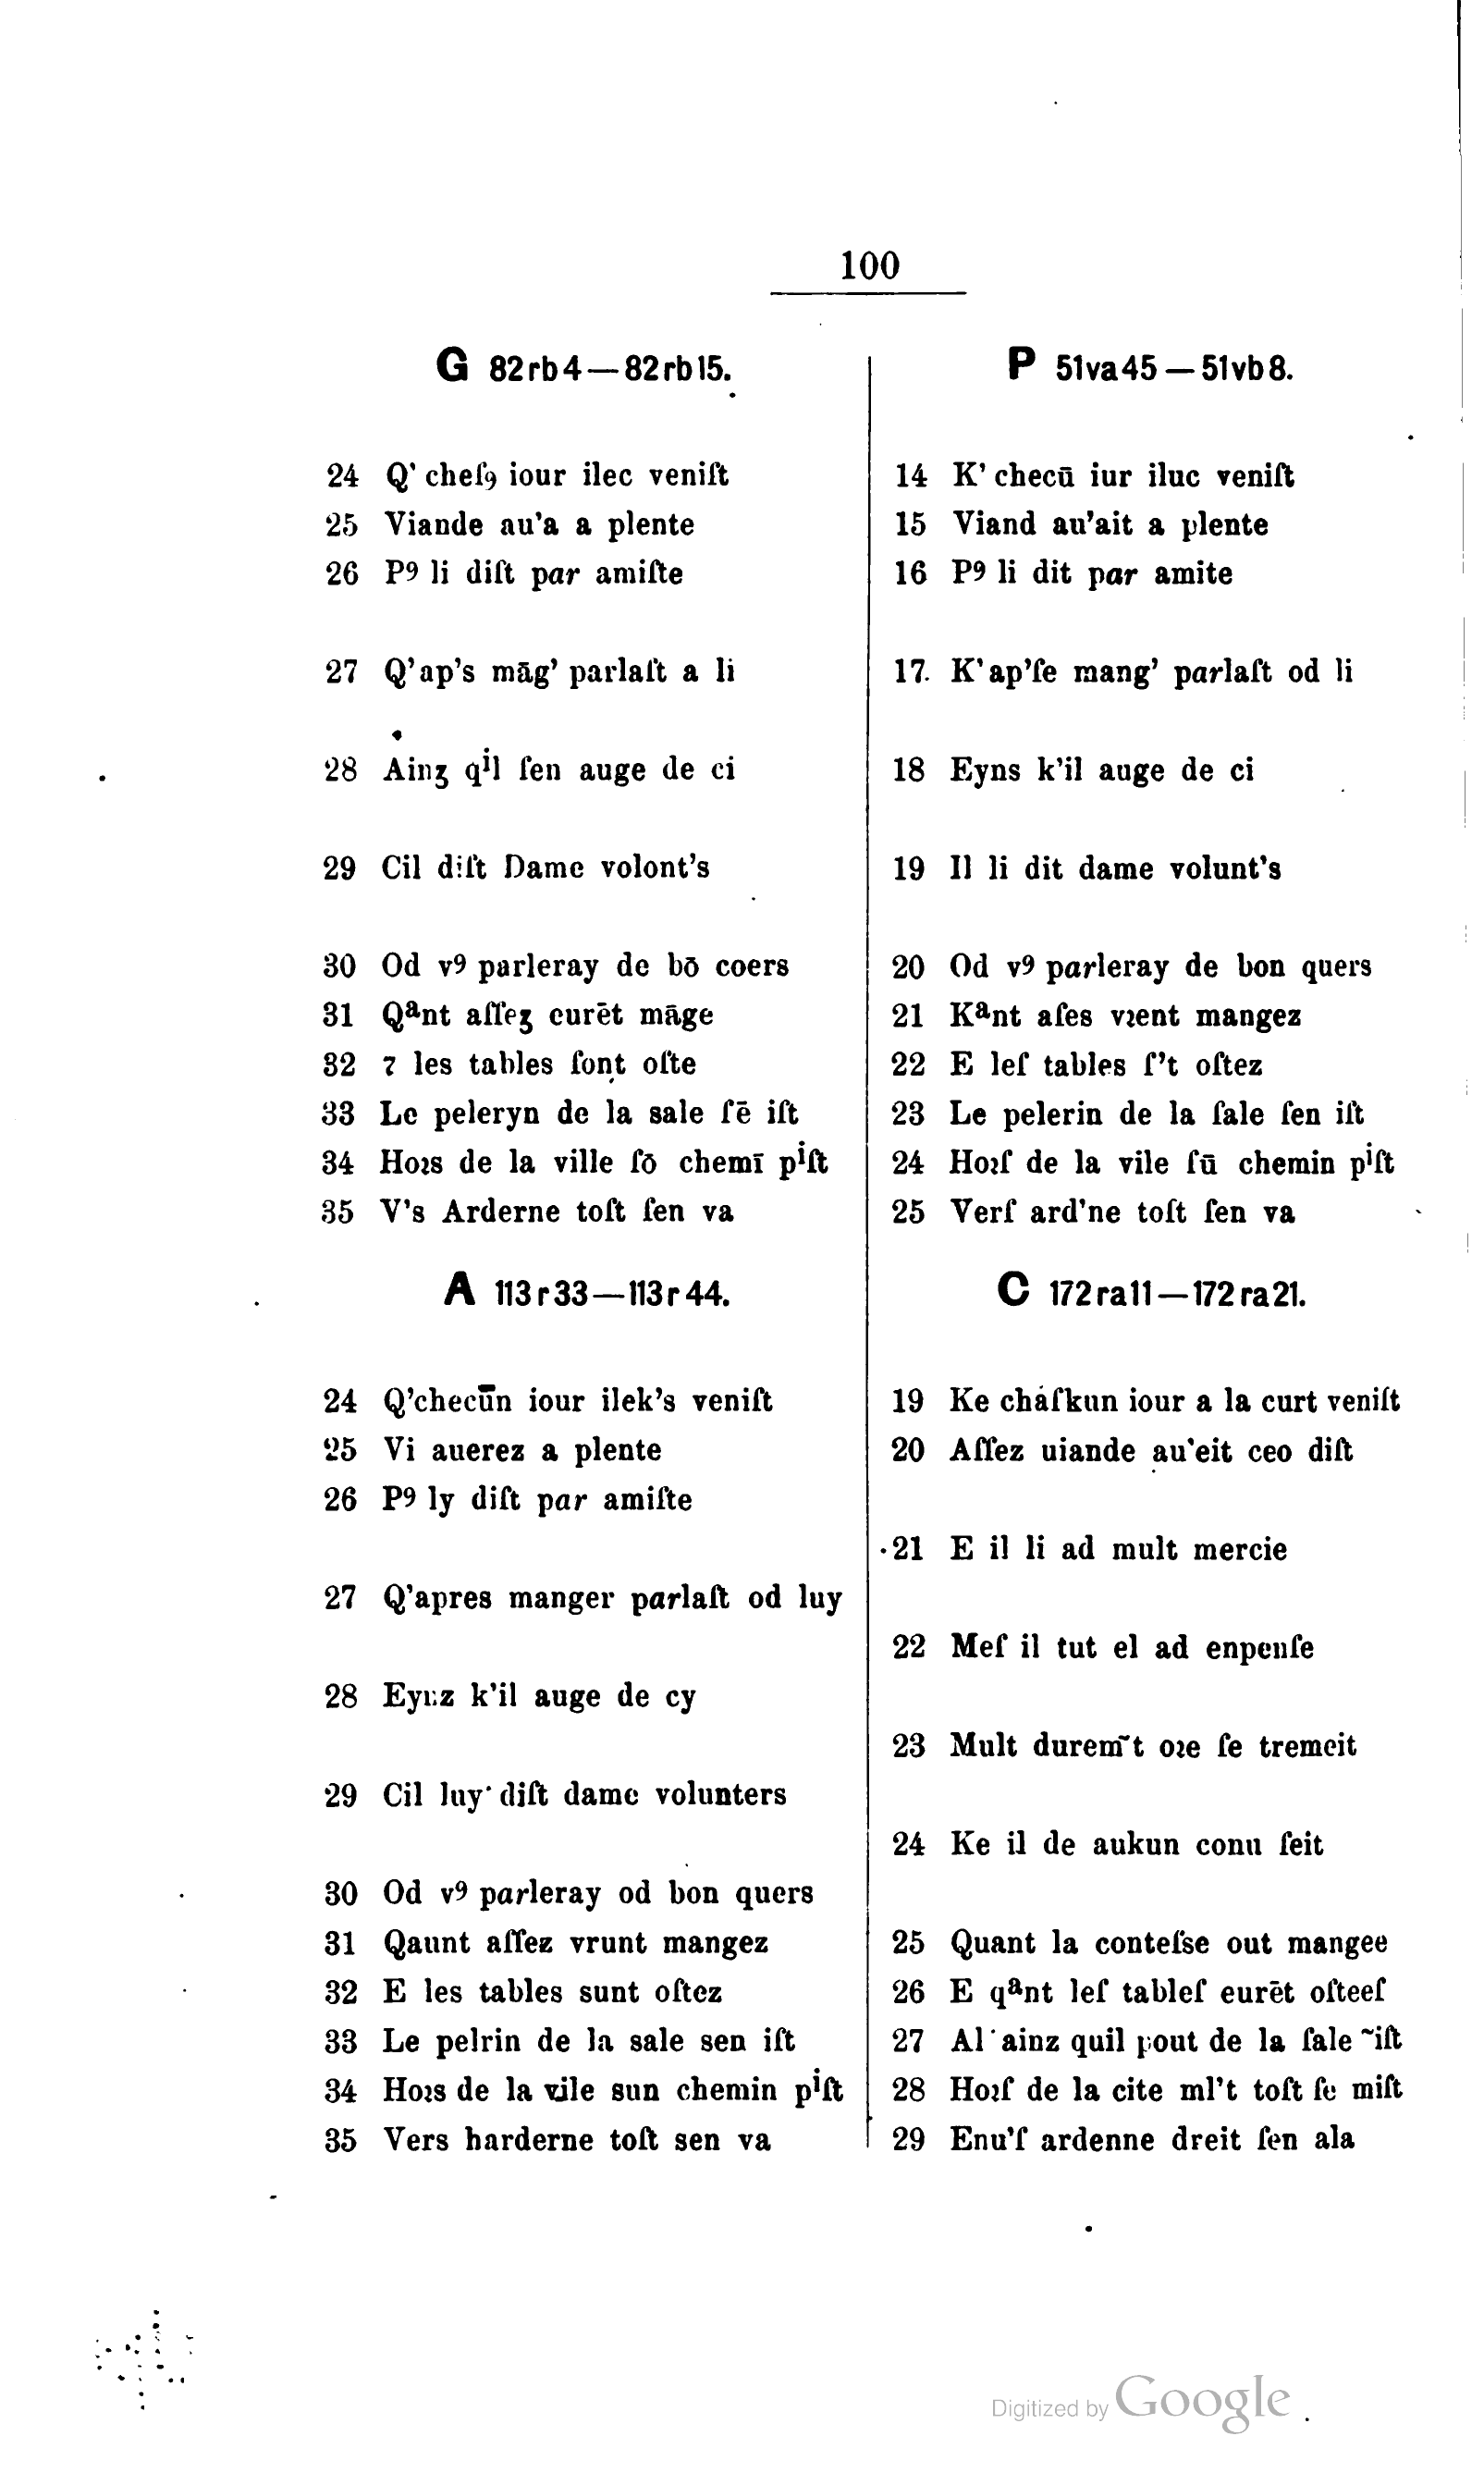 100
G 82rb4—82rb15.
24 Q' cheſꝯ iour ilec veniſt
25 Viande au'a a plente
26 Pꝰ li diſt par amiſte
27 Q'ap's māg' parlaſt a li
28 Ainʒ qⁱl ſen auge de ci
29 Cil diſt Dame volont's
30 Od vꝰ parleray de bō coers
31 Qᵃnt aſſeʒ eurēt māge
32 ⁊ les tables ſont oſte
33 Le peleryn de la sale ſē iſt
34 Hoꝛs de la ville ſō chemī pⁱſt
35 V's Arderne toſt ſen va
P 51va45—51vb8.
14 K' checū iur iluc veniſt
15 Viand au'ait a plente
16 Pꝰ li dit par amite
17 K'ap'ſe mang' parlaſt od li
18 Eyns k'il auge de ci
19 Il li dit dame volunt's
20 Od vꝰ parleray de bon quers
21 Kᵃnt aſes vꝛent mangez
22 E leſ tables ſ't oſtez
23 Le pelerin de la ſale ſen iſt
24 Hoꝛſ de la vile ſū chemin pⁱſt
25 Verſ ard'ne toſt ſen va
A 113r33—113r44.
24 Q'checūn iour ilek's veniſt
25 Vi auerez a plente
26 Pꝰ ly diſt par amiſte
27 Q'apres manger parlaſt od luy
28 Eynz k'il auge de cy
29 Cil luy diſt dame volunters
30 Od vꝰ parleray od bon quers
31 Qaunt aſſez vrunt mangez
32 E les tables sunt oſtez
33 Le pelrin de la sale sen iſt
34 Hoꝛs de la vile sun chemin pⁱſt
35 Vers harderne toſt sen va
C 172ra11—172ra21.
19 Ke chaſkun iour a la curt veniſt
20 Aſſez uiande au'eit ceo diſt
21 E il li ad mult mercie
22 Meſ il tut el ad enpenſe
23 Mult durem̃t oꝛe ſe tremeit
24 Ke il de aukun conu ſeit
25 Quant la conteſse out mangee
26 E qᵃnt leſ tableſ eurēt oſteeſ
27 Al ainz quil pout de la ſale ~iſt
28 Hoꝛſ de la cite ml't toſt ſe miſt
29 Enu'ſ ardenne dreit ſen ala
Digitized by Google